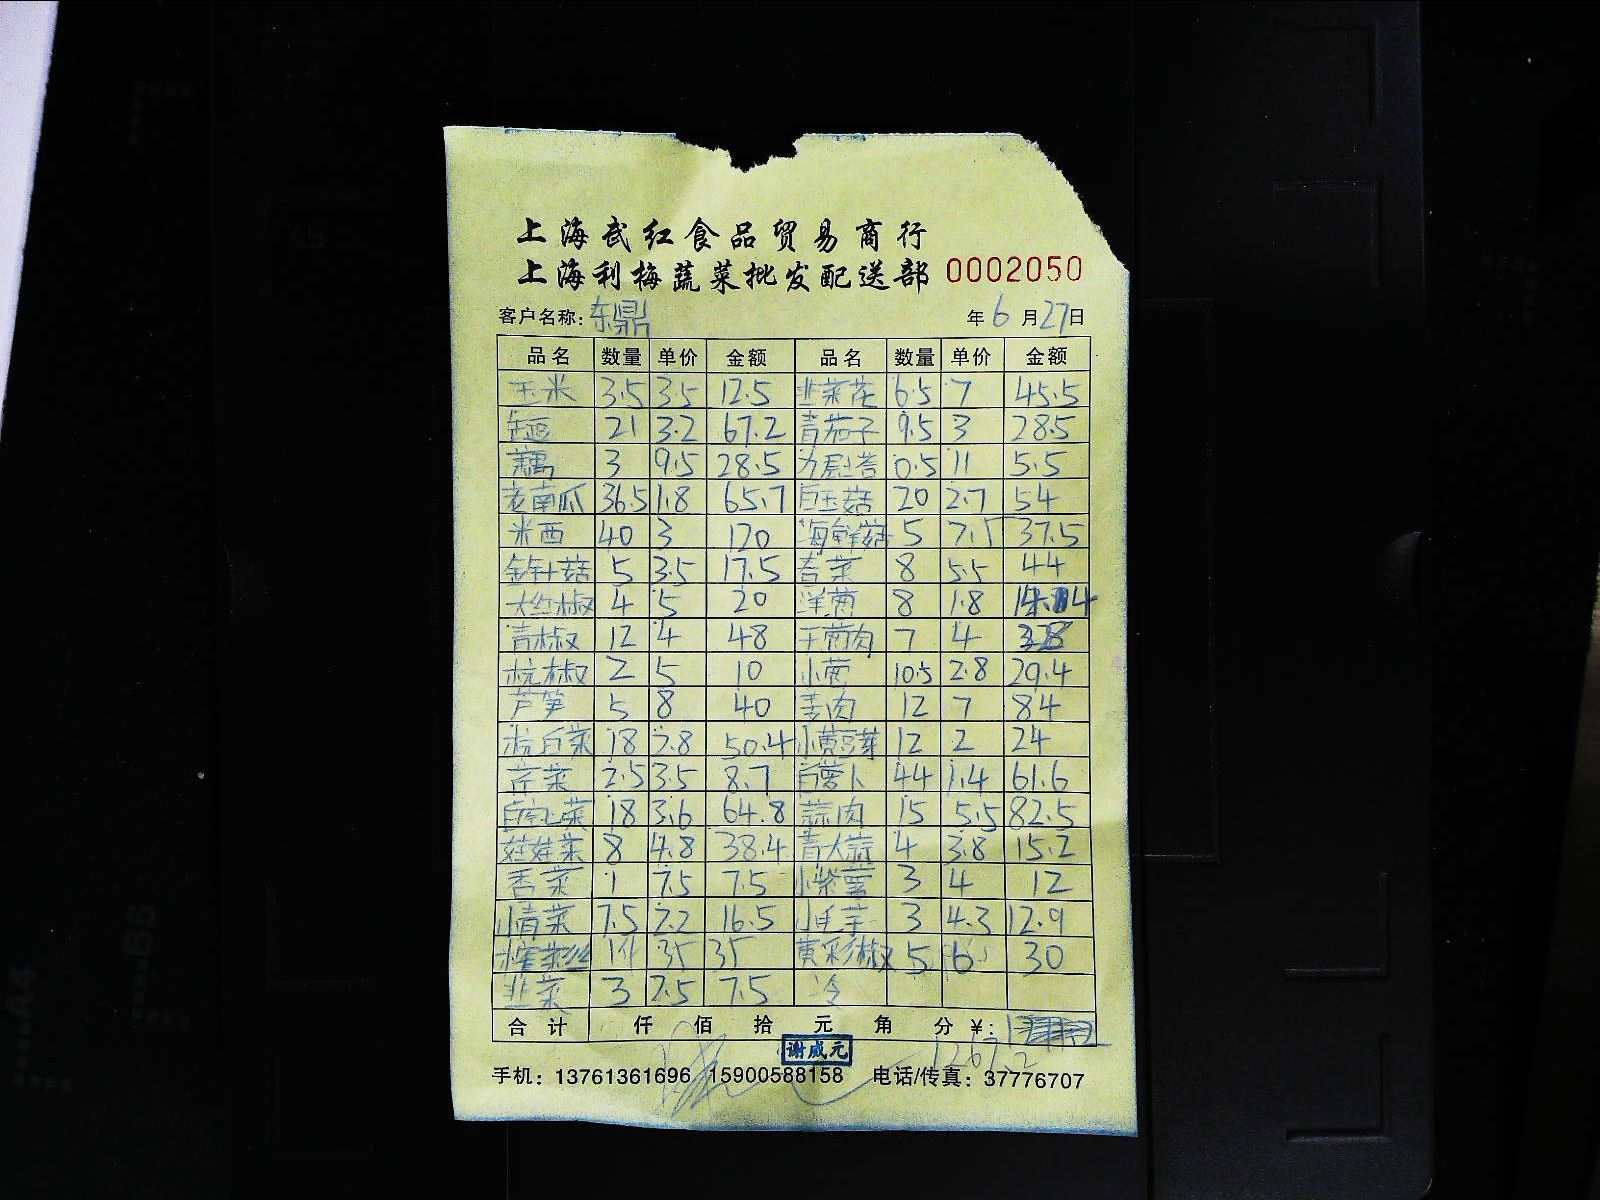 上海武红食品贸易商行
上海利梅蔬菜批发配送部 0002050
客户名称: 东鼎 年 6 月 27 日
品名 数量 单价 金额 品名 数量 单价 金额
玉米 3.5 3.5 12.5 韭菜花 6.5 7 45.5
21 3.2 67.2 青茄子 9.5 3 28.5
藕 3 9.5 28.5 0.5 11 5.5
老南瓜 36.5 1.8 65.7 白玉菇 20 2.7 54
米西 40 3 120 海鲜菇 5 7.5 37.5
金针菇 5 3.5 17.5 8 5.5 44
大红椒 4 5 20 洋葱 8 1.8 14.4
青椒 12 4 48 7 4 28
杭椒 2 5 10 小葱 10.5 2.8 29.4
芦笋 5 8 40 姜肉 12 7 84
杭白菜 18 2.8 50.4 小黄豆芽 12 2 24
芹菜 2.5 3.5 8.7 白萝卜 44 1.4 61.6
白空心菜 18 3.6 64.8 蒜肉 15 5.5 82.5
娃娃菜 8 4.8 38.4 青大蒜 4 3.8 15.2
香菜 1 7.5 7.5 3 4 12
小青菜 7.5 2.2 16.5 小毛芋 3 4.3 12.9
榨菜丝 1件 35 35 黄彩椒 5 6 30
韭菜 3 2.5 7.5 冷
合计 仟 佰 拾 元 角 分 ¥:
谢成元
1267.2
手机: 13761361696 15900588158 电话/传真: 37776707